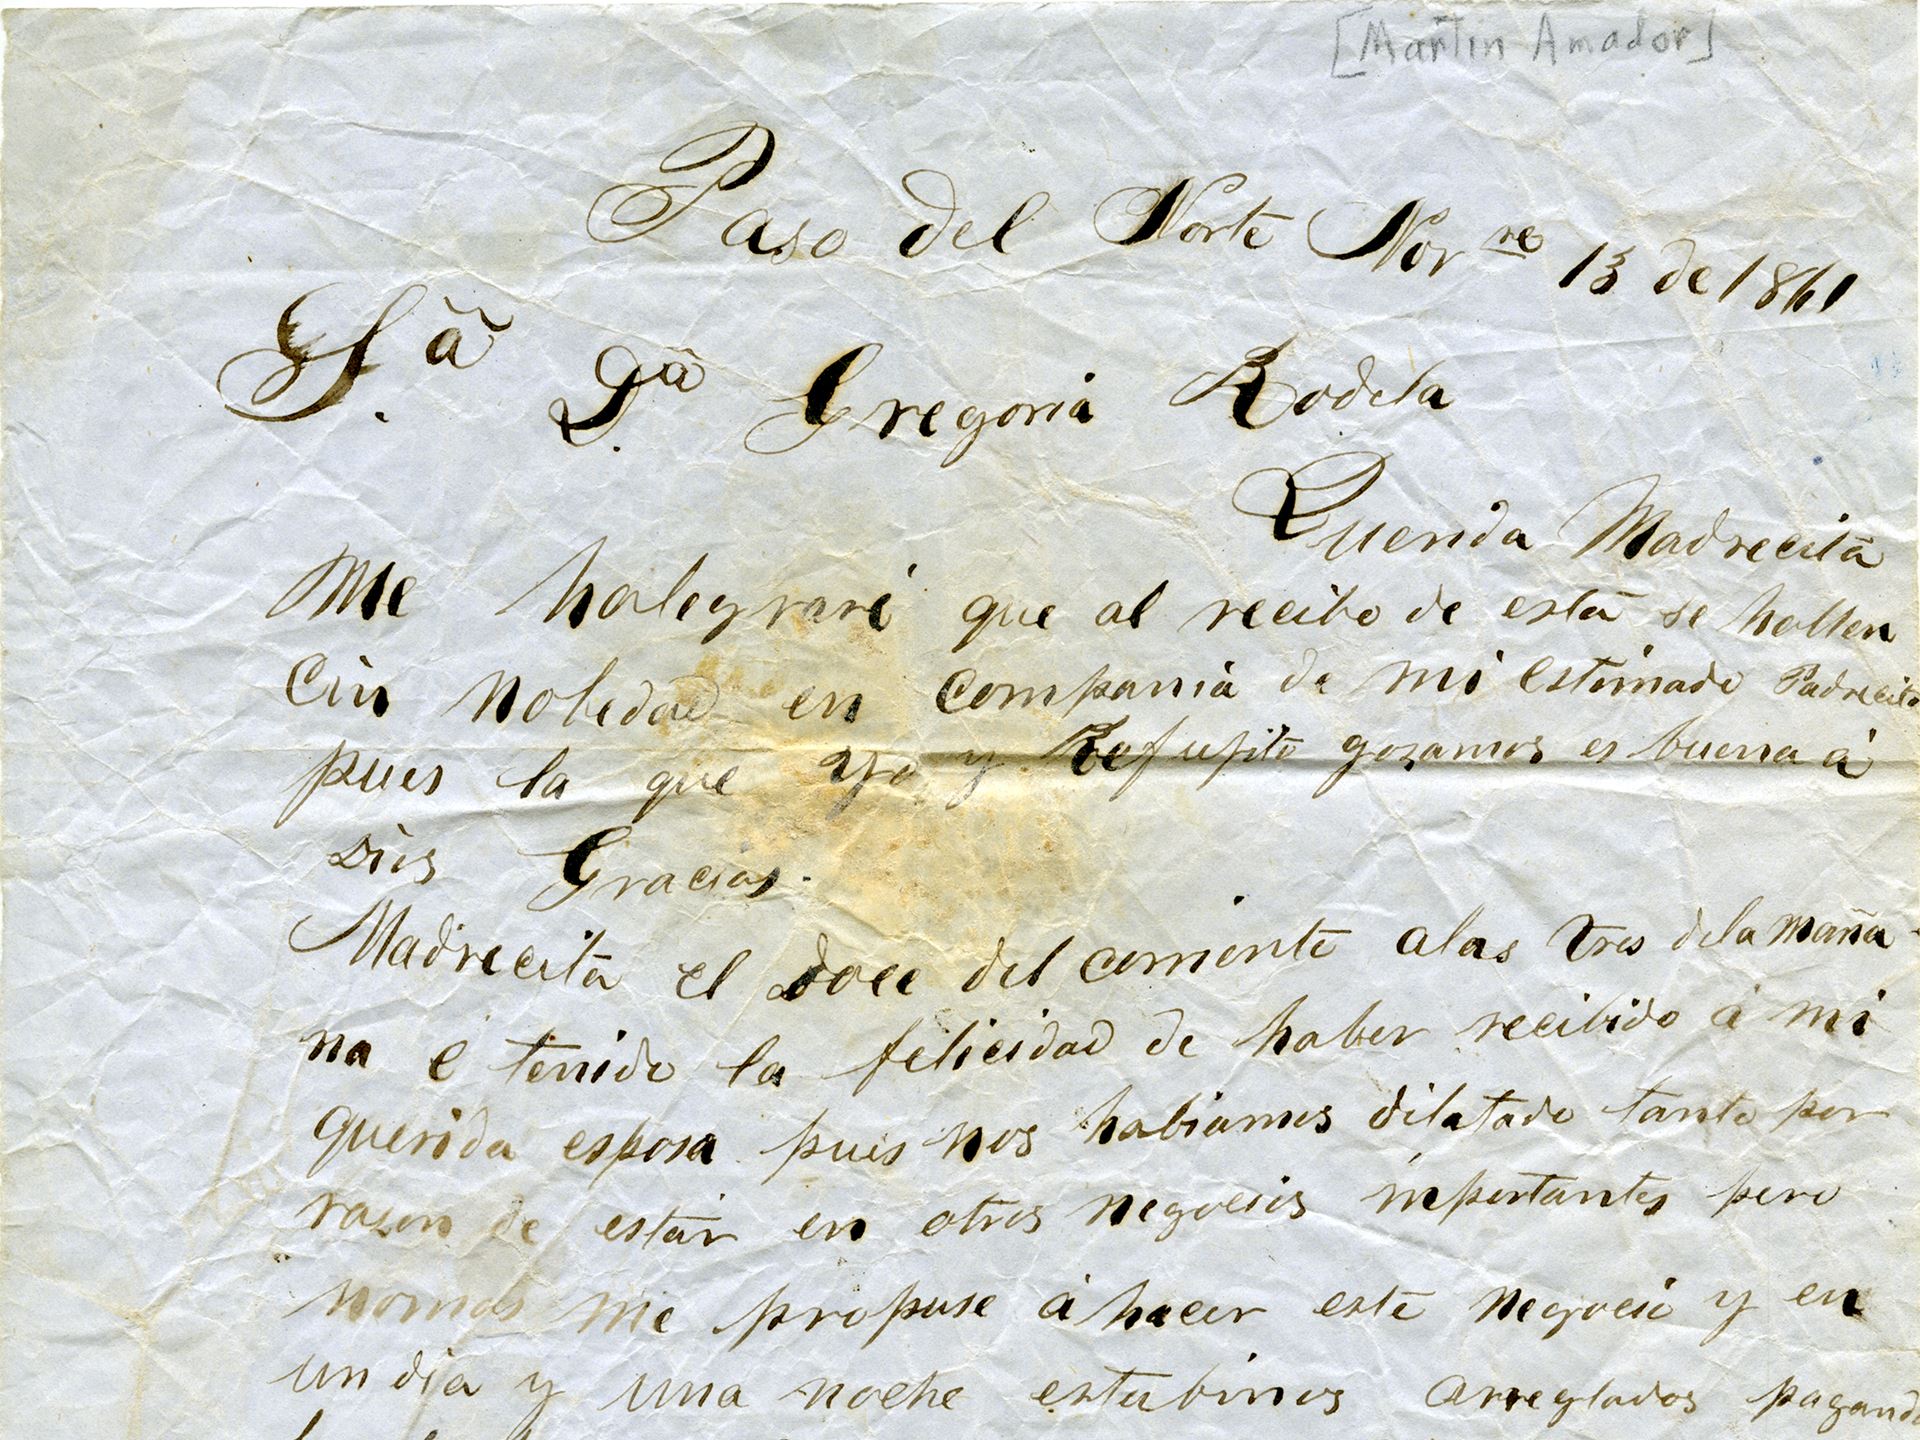 [Martin Amador]
Paso del Norte Nov.re 13 de 1861
S.a D.a Gregoria Rodela
Querida Madrecita
Me halegraré que al recibo de esta se hallen
cin nobedad en compania de mi estimado Padrecito
pues la que yo y Refujito gozamos es buena á
Dios Gracias.
Madrecita el doce del corriente alas tres dela maña-
na é tenido la felicidad de haber recibido á mi
querida esposa pues nos habiamos dilatado tanto por
razon de estar en otros negocios importantes pero
nomas me propuse á hacer este negocio y en
un dia y una noche estubimos arreglados pagando